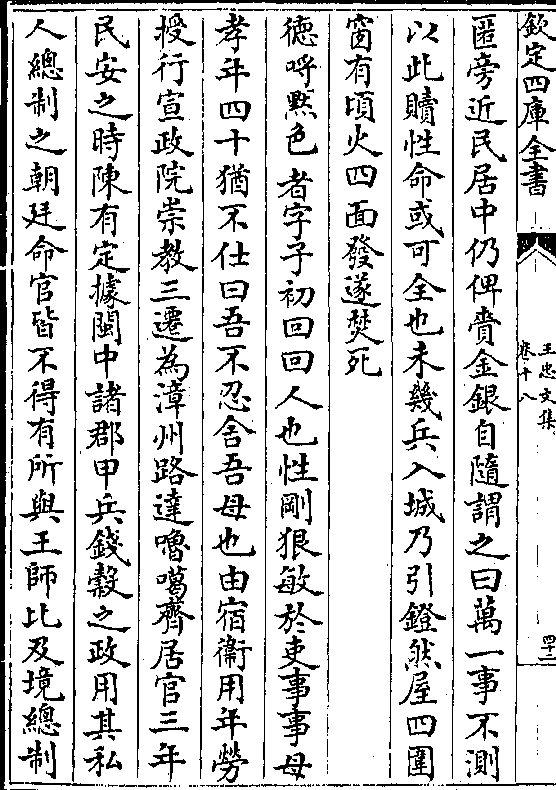 欽定四庫全書
王忠文集
卷十八
四十二
匿旁近民居中仍俾賫金銀自隨謂之曰萬一事不測
以此贖性命或可全也未幾兵入城乃引鐙然屋四圍
窗有頃火四面發遂焚死
德呼黙色者字子初回回人也性剛狠敏於吏事事母
孝年四十猶不仕曰吾不忍舍吾母也由宿衛用年勞
授行宣政院崇教三遷為漳州路達嚕噶齊居官三年
民安之時陳有定據閩中諸郡甲兵錢糓之政用其私
人總制之朝廷命官皆不得有所與王師比及境總制